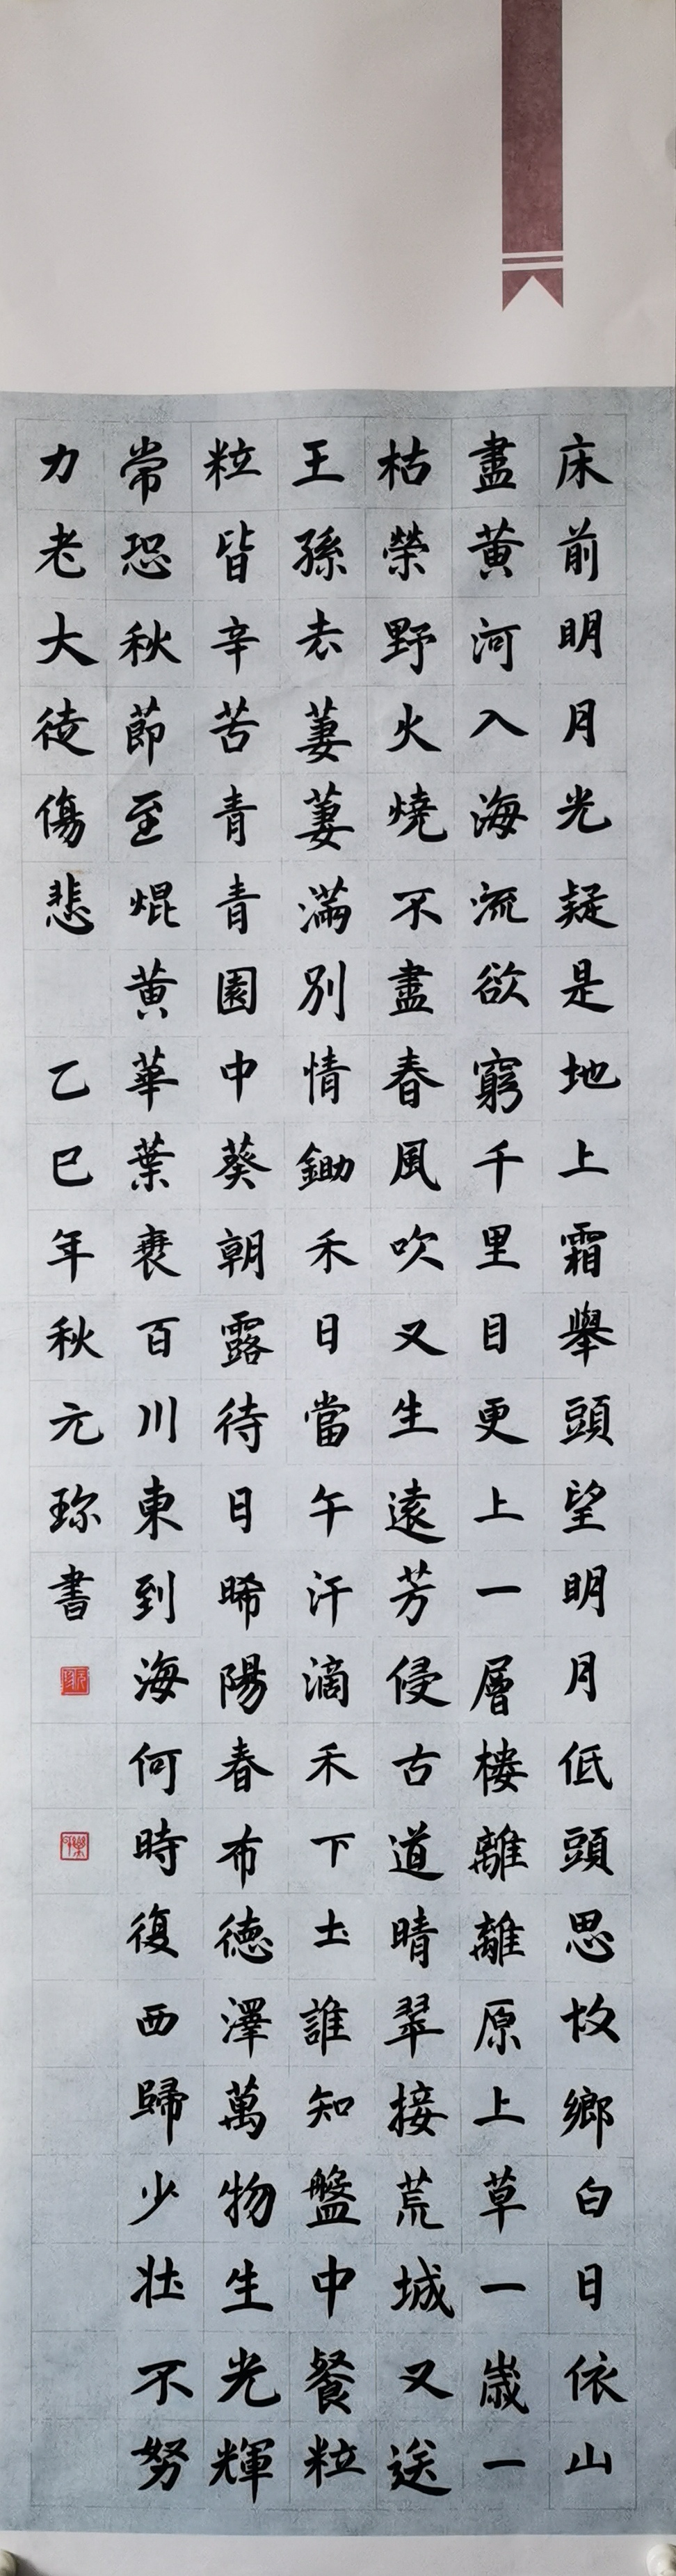 床前明月光疑是地上霜舉頭望明月低頭思故鄉白日依山
盡黃河入海流欲窮千里目更上一層樓離離原上草一歲一
枯榮野火燒不盡春風吹又生遠芳侵古道晴翠接荒城又送
王孫去萋萋滿別情鋤禾日當午汗滴禾下土誰知盤中餐粒
粒皆辛苦青青園中葵朝露待日晞陽春布德澤萬物生光輝
常恐秋節至焜黃華葉衰百川東到海何時復西歸少壯不努
力老大徒傷悲 乙巳年秋元珎書